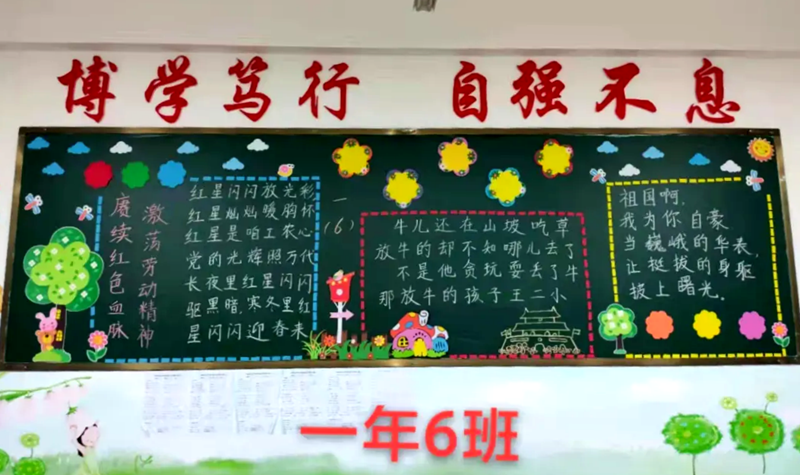 博学笃行 自强不息
赓续红色血脉
激荡劳动精神
红星闪闪放光彩
红星灿灿暖胸怀
红星是咱工农心
党的光辉照万代
长夜里红星闪闪
驱黑暗,寒冬里红
星闪闪迎春来
一(6)
牛儿还在山坡吃草
放牛的却不知哪儿去了
不是他贪玩耍丢了牛
那放牛的孩子王二小
祖国啊,
我为你自豪
当巍峨的华表,
让挺拔的身躯
披上曙光。
一年6班